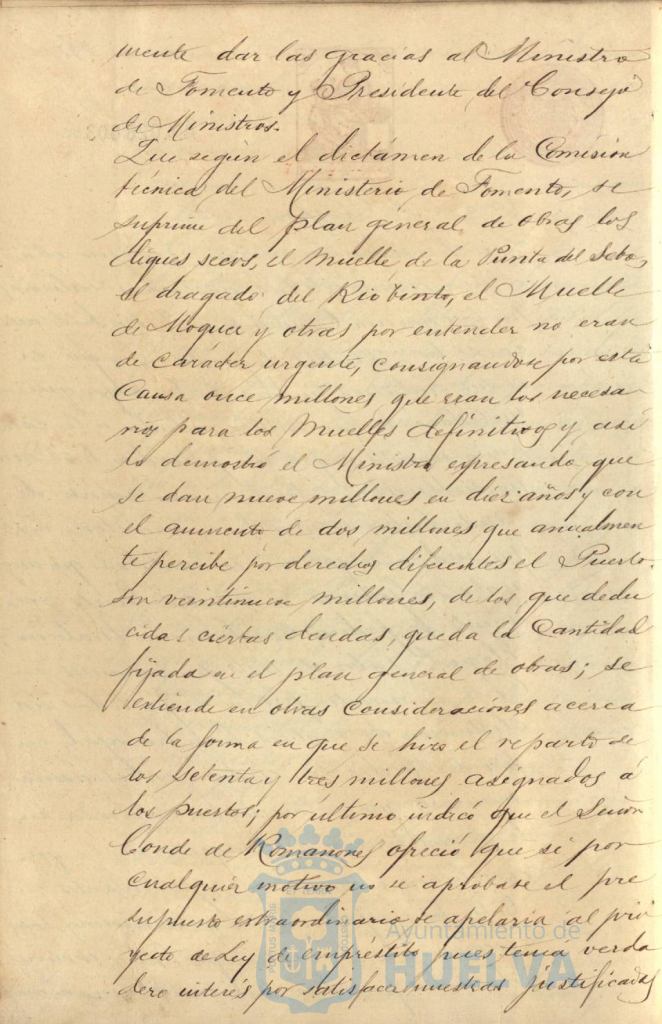 mente dar las gracias al Ministro
de Fomento y Presidente del Consejo
de Ministros.
Que según el dictámen de la Comisión
técnica del Ministerio de Fomento, se
suprime del plan general de obras los
diques secos, el Muelle de la Punta del Sebo,
el dragado del Riotinto, el Muelle
de Moguer y otras por entender no eran
de carácter urgente, consignandose por esta
Causa once millones que eran los necesa
rios para los Muelles definitivos y asi
lo demostró el Ministro expresando que
se dan nueve millones en diez años y con
el aumento de dos millones que anualmen
te percibe por derechos diferentes el Puerto
son veintinueve millones, de los que dedu
cidas ciertas deudas, queda la Cantidad
fijada en el plan general de obras; se
extiende en otras consideraciones acerca
de la forma en que se hizo el reparto de
los setenta y tres millones asignados á
los puertos; por último indicó que el Señor
Conde de Romanones ofreció que si por
cualquier motivo no se aprobase el pre
supuesto extraordinario se apelaria al pro
yecto de Ley de empréstito pues tenía verda
dero interés por satisfacer nuestras justificadas
Ayuntamiento de
HUELVA